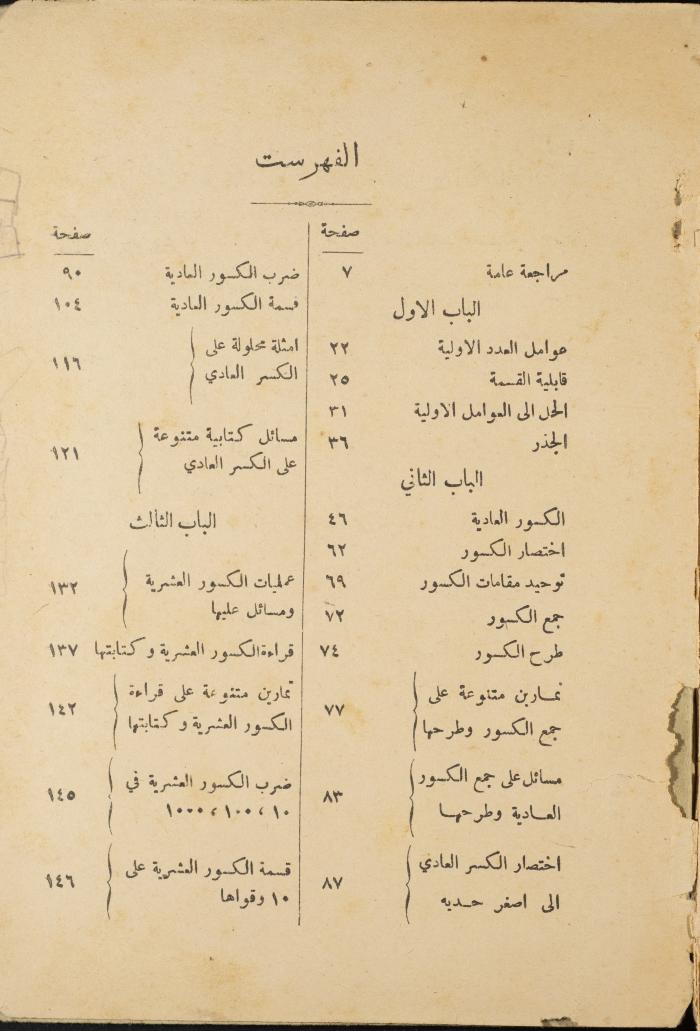 الفهرست
صفحة
مراجعة عامة ٧
الباب الاول
عوامل العدد الاولية ٢٢
قابلية القسمة ٢٥
الحل الى العوامل الاولية ٣١
الجذر ٣٦
الباب الثاني
الكسور العادية ٤٦
اختصار الكسور ٦٢
توحيد مقامات الكسور ٦٩
جمع الكسور ٧٢
طرح الكسور ٧٤
تمارين متنوعة على
جمع الكسور وطرحها ٧٧
مسائل على جمع الكسور
العادية وطرحها ٨٣
اختصار الكسر العادي
الى اصغر حديه ٨٧
صفحة
ضرب الكسور العادية ٩٠
قسمة الكسور العادية ١٠٤
امثلة محلولة على
الكسر العادي ١١٦
مسائل كتابية متنوعة
على الكسر العادي ١٢١
الباب الثالث
عمليات الكسور العشرية
ومسائل عليها ١٣٢
قراءة الكسور العشرية وكتابتها ١٣٧
تمارين متنوعة على قراءة
الكسور العشرية وكتابتها ١٤٢
ضرب الكسور العشرية في
١٠ ، ١٠٠ ، ١٠٠٠ ١٤٥
قسمة الكسور العشرية على
١٠ وقواها ١٤٦